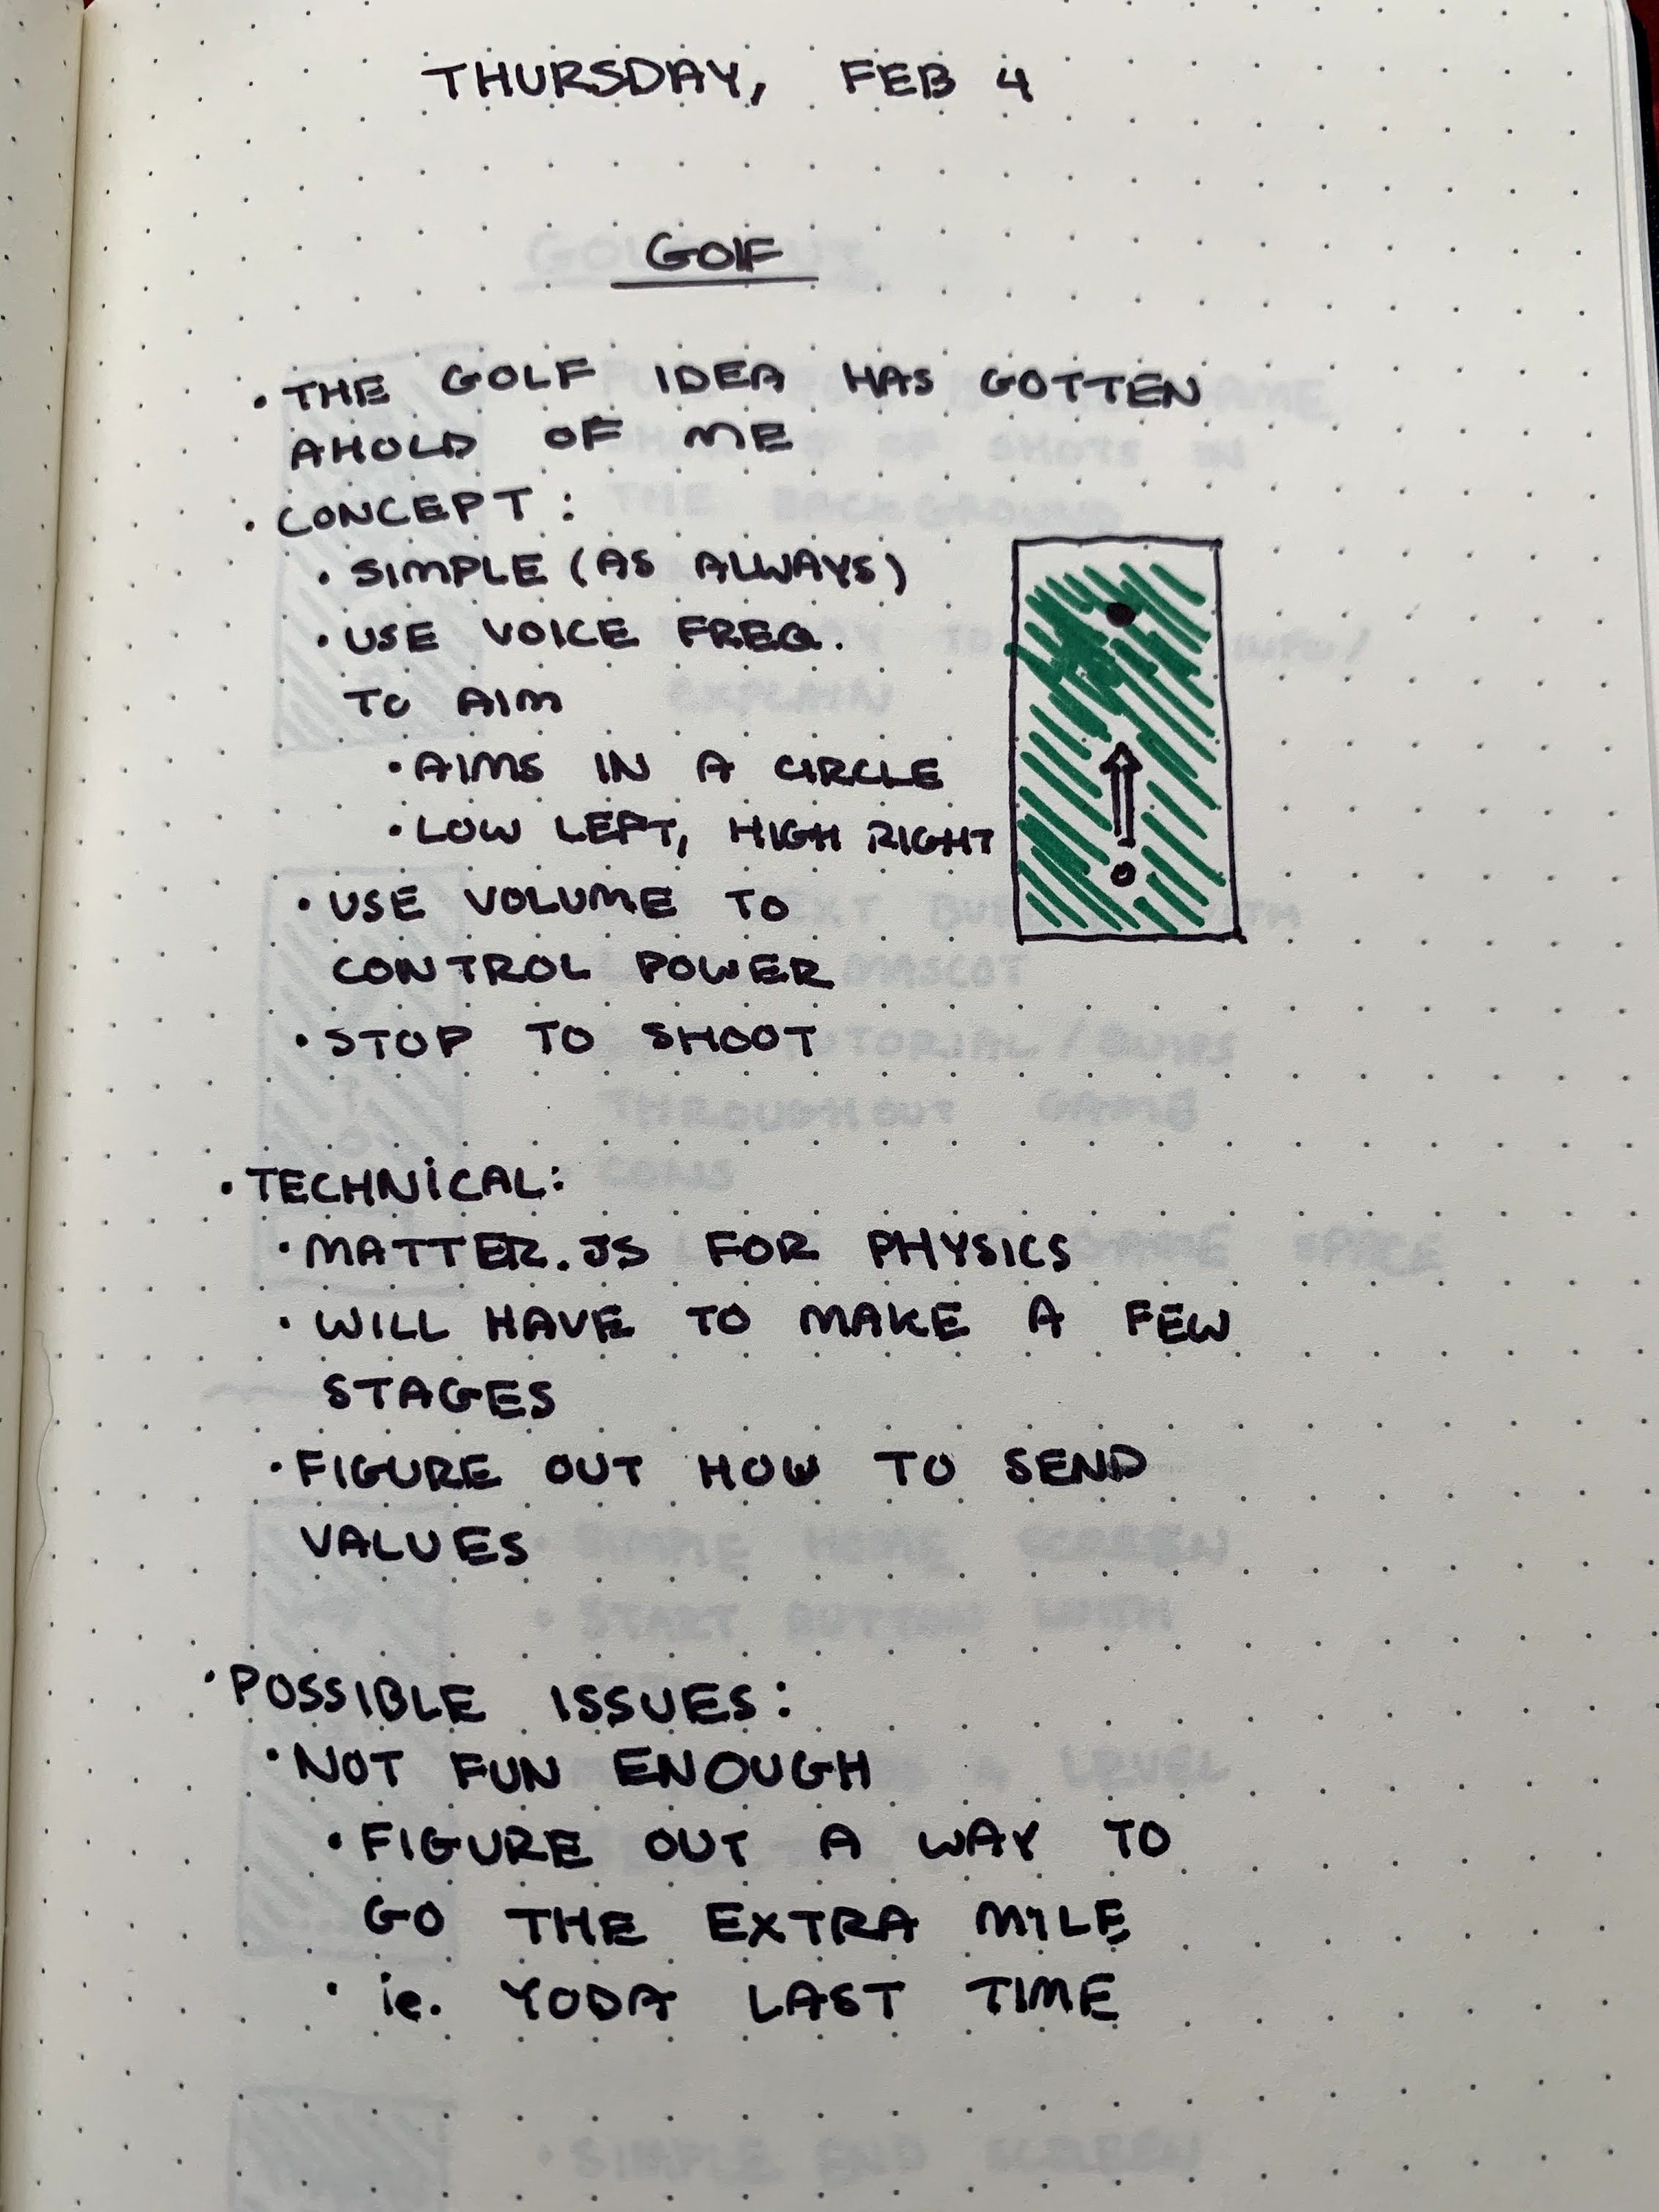 THURSDAY, FEB 4
GOLF
• THE GOLF IDEA HAS GOTTEN
AHOLD OF ME
• CONCEPT:
• SIMPLE (AS ALWAYS)
• USE VOICE FREQ.
TO AIM
• AIMS IN A CIRCLE
• LOW LEFT, HIGH RIGHT
• USE VOLUME TO
CONTROL POWER
• STOP TO SHOOT
• TECHNICAL:
• MATTER.JS FOR PHYSICS
• WILL HAVE TO MAKE A FEW
STAGES
• FIGURE OUT HOW TO SEND
VALUES
• POSSIBLE ISSUES:
• NOT FUN ENOUGH
• FIGURE OUT A WAY TO
GO THE EXTRA MILE
• ie. YODA LAST TIME